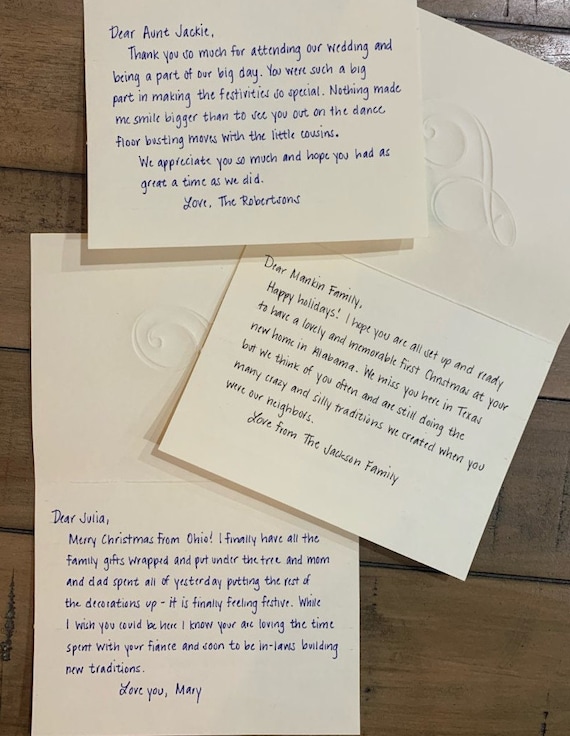 Dear Aunt Jackie,
Thank you so much for attending our wedding and
being a part of our big day. You were such a big
part in making the festivities so special. Nothing made
me smile bigger than to see you out on the dance
floor busting moves with the little cousins.
We appreciate you so much and hope you had as
great a time as we did.
Love, The Robertsons
Dear Mankin Family,
Happy holidays! I hope you are all set up and ready
to have a lovely and memorable first Christmas at your
new home in Alabama. We miss you here in Texas
but we think of you often and are still doing the
many crazy and silly traditions we created when you
were our neighbors.
Love from The Jackson Family
Dear Julia,
Merry Christmas from Ohio! I finally have all the
family gifts wrapped and put under the tree and mom
and dad spent all of yesterday putting the rest of
the decorations up - it is finally feeling festive. While
I wish you could be here I know your are loving the time
spent with your fiance and soon to be in-laws building
new traditions.
Love you, Mary